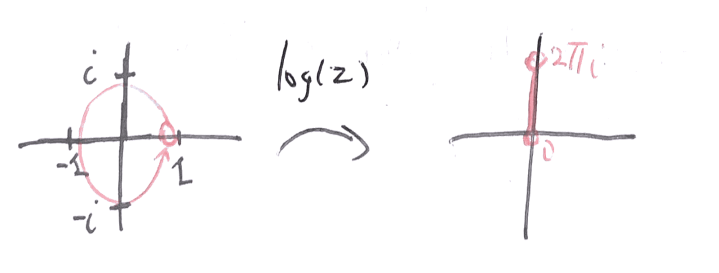 i
-1
1
-i
log(z)
2πi
0